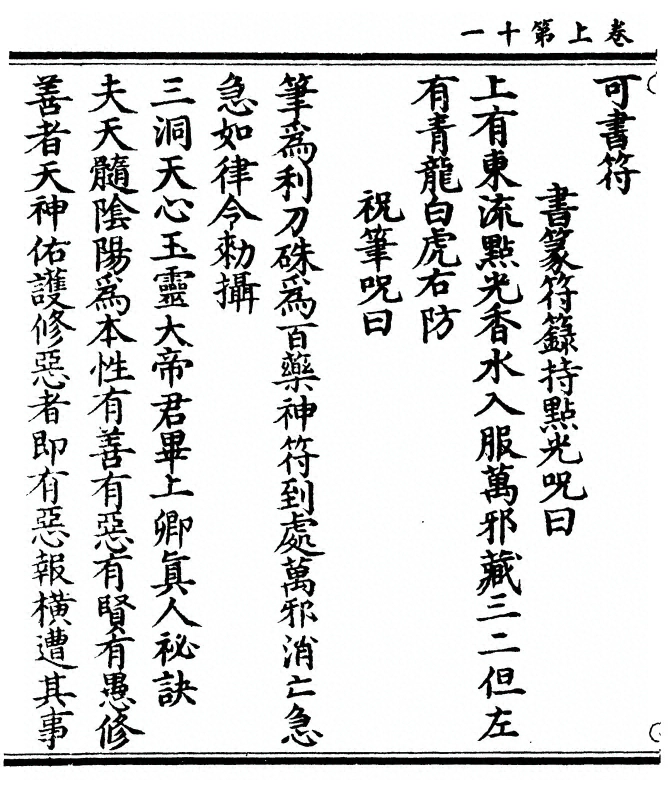 卷上第十一
可書符
書篆符籙持點光呪曰
上有東流點光香水入服萬邪藏三二但左
有青龍白虎右防
祝筆呪曰
筆爲利刀硃爲百藥神符到處萬邪消亡急
急如律令勑攝
三洞天心玉靈大帝君畢上卿眞人祕訣
夫天髓陰陽爲本性有善有惡有賢有愚修
善者天神佑護修惡者即有惡報橫遭其事